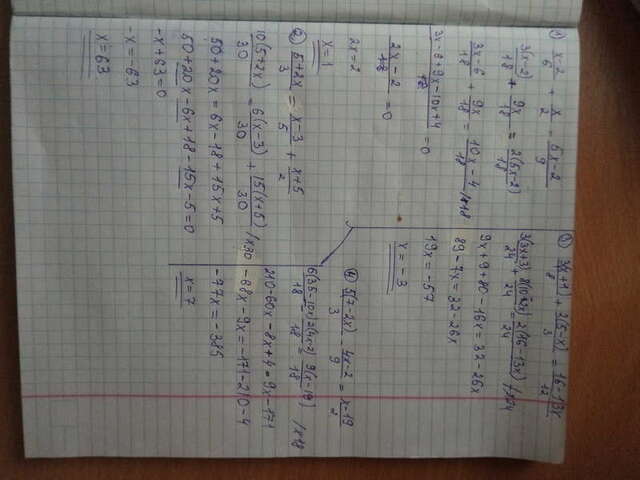 ① (x-2)/6 + x/2 = (5x-2)/9
3(x-2)/18 + 9x/18 = 2(5x-2)/18
(3x-6)/18 + 9x/18 = (10x-4)/18 /x18
(3x-6+9x-10x+4)/18 = 0
(2x-2)/18 = 0
2x=2
x=1
② (5+2x)/3 = (x-3)/5 + (x+5)/2
10(5+2x)/30 = 6(x-3)/30 + 15(x+5)/30 /x30
50+20x = 6x-18+15x+5
50+20x-6x+18-15x-5=0
-x+63=0
-x=-63
x=63
③ 3(x+1)/8 + 2(5-x)/3 = (16-13x)/12
3(3x+3)/24 + 8(10-2x)/24 = 2(16-13x)/24 /x24
9x+9+80-16x=32-26x
89-7x=32-26x
19x=-57
x=-3
④ 5(7-2x)/3 - (4x-2)/9 = (x-19)/2
6(35-10x)/18 - 2(4x-2)/18 = 9(x-19)/18 /x18
210-60x-8x+4=9x-171
-68x-9x=-171-210-4
-77x=-385
x=7